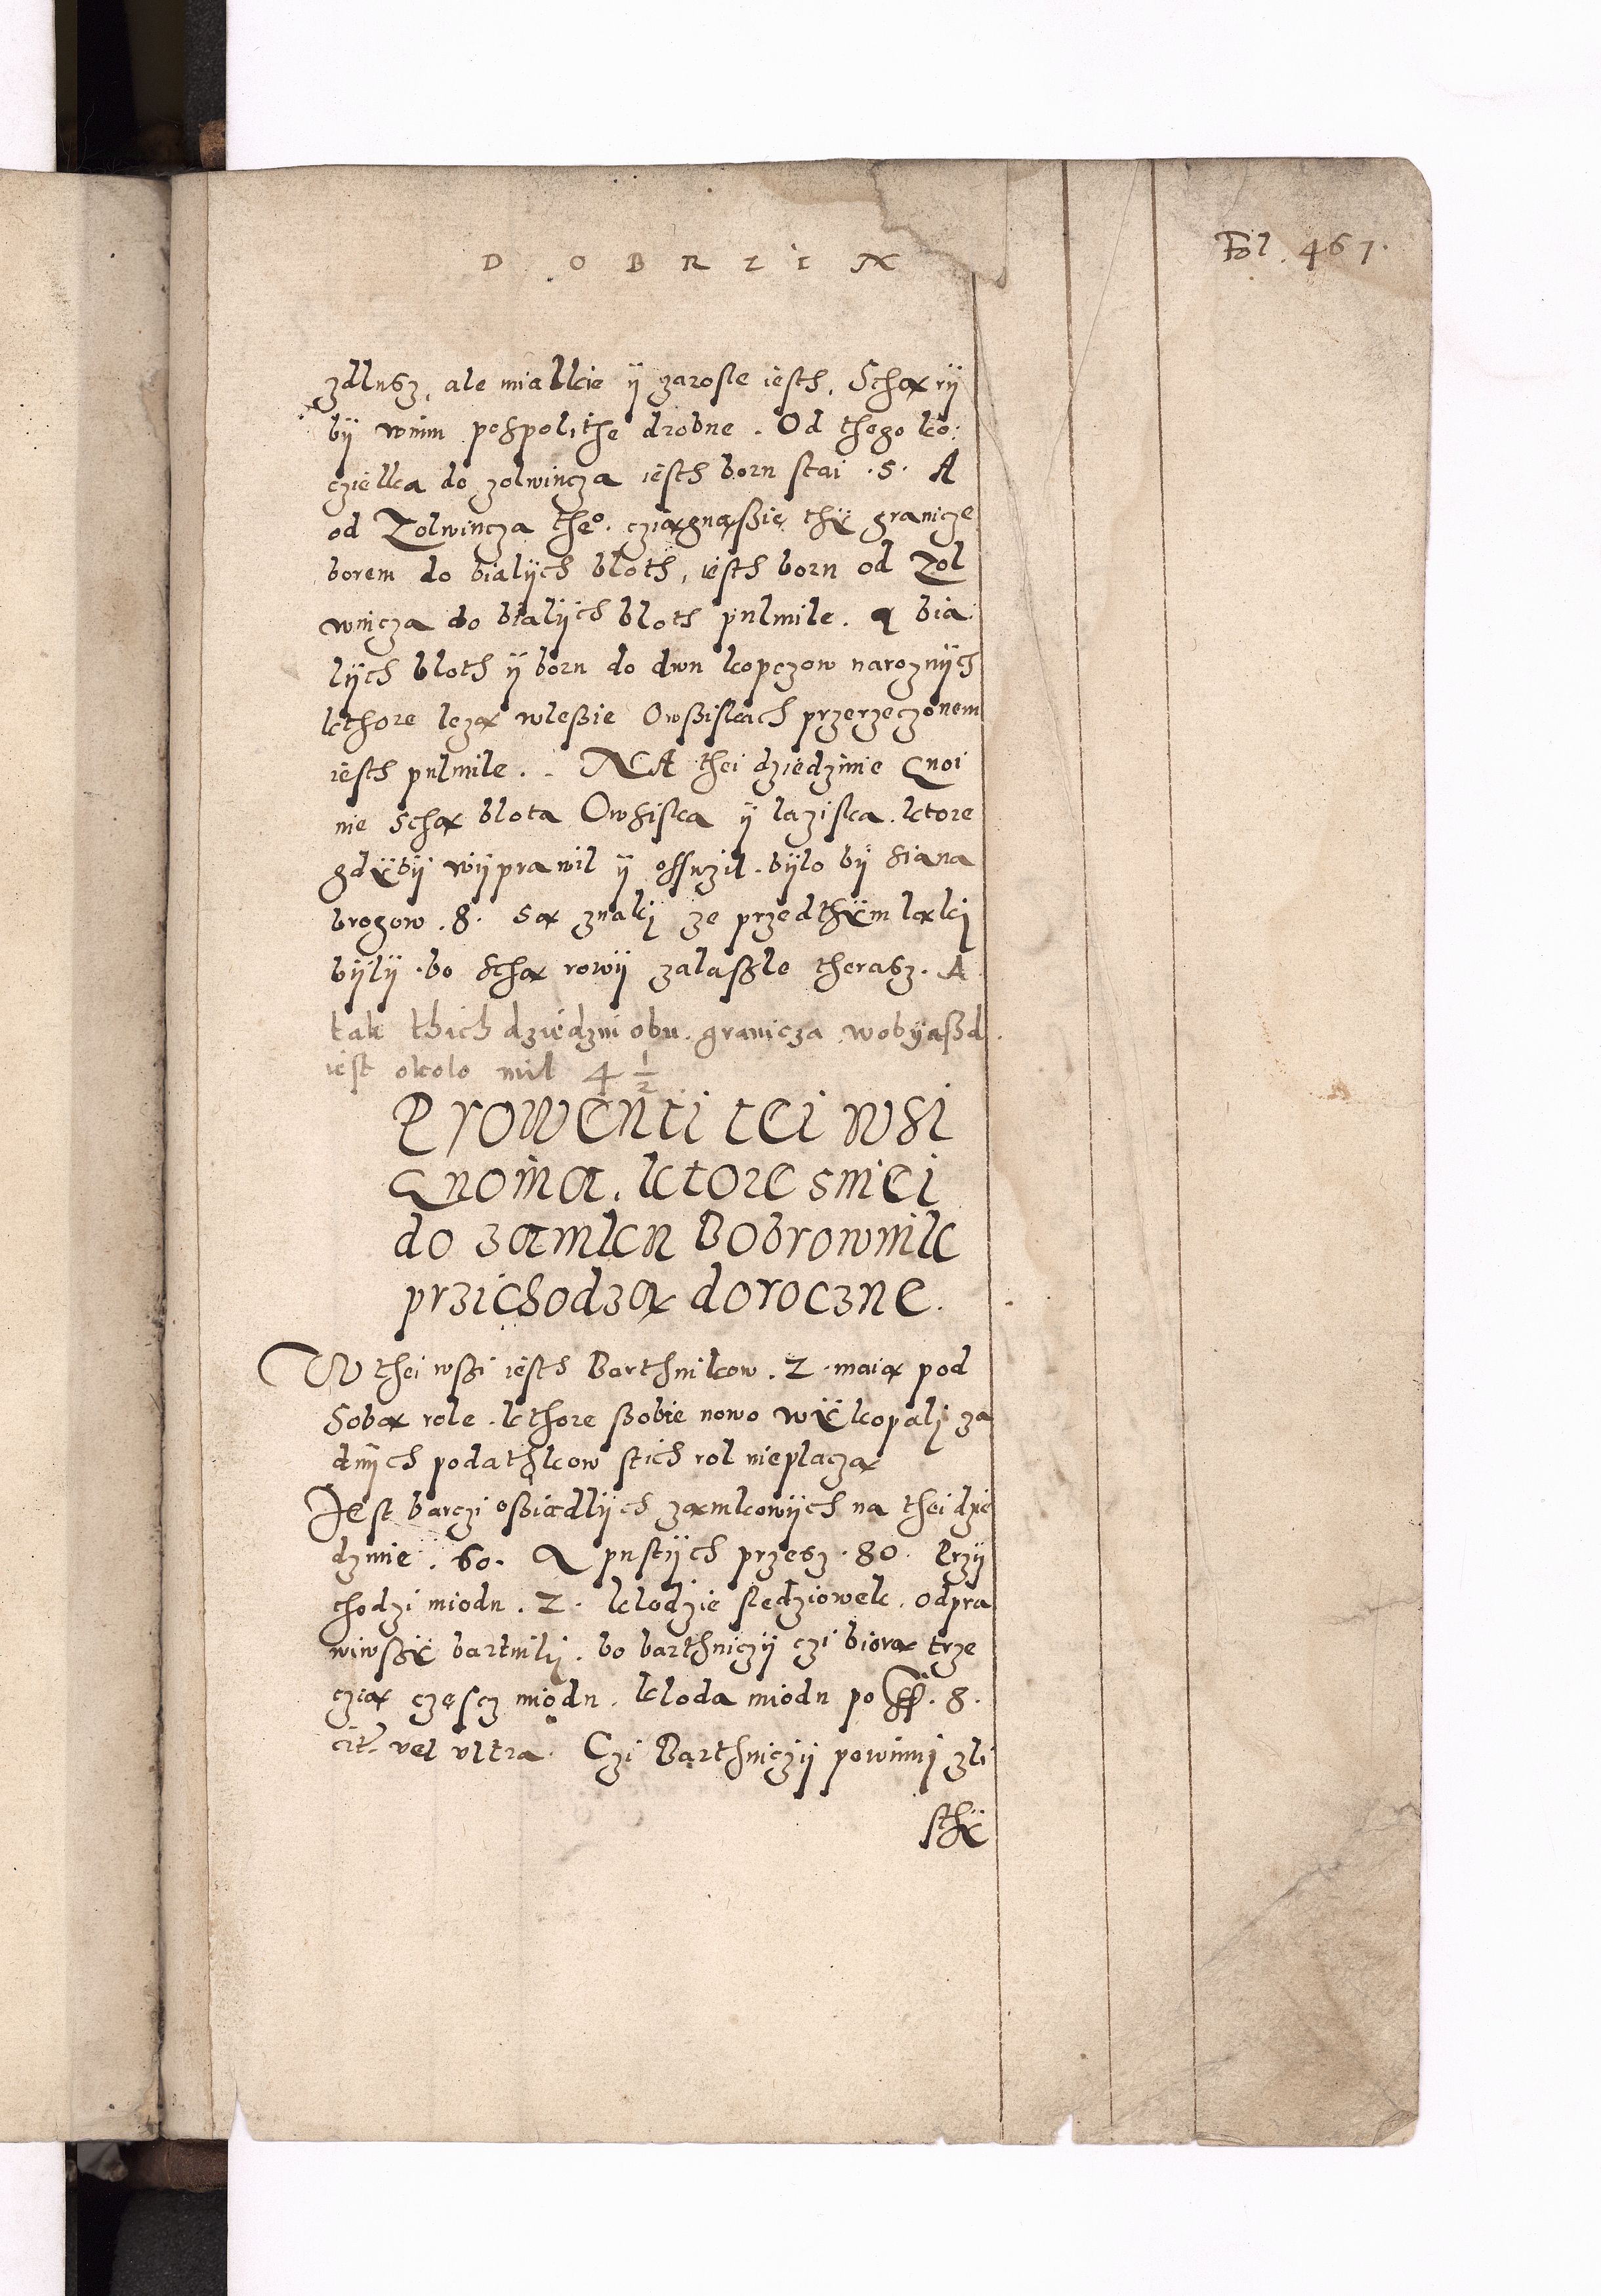 DOBRZIN
Fol. 467.
zdlusz, ale mialkie ÿ zarosle iesth, Schą rÿ
bÿ wnim pospolithe drobne. Od thego ko:
czielka do zolwincza iesth boru stai .5. A
od Zolwincza theo. cziągną ßię thÿ granicze
borem do bialÿch bloth, iesth boru od Zol
wincza do bialÿch bloth pulmile. A bia
lÿch bloth ÿ boru do dwu kopczow naroznÿch
kthore lezą wleßie Owßiskach przerzeczonem
iesth pulmile. NA thei dziedzinie Gnoi
nie Schą blota Owsiska ÿ laziska. ktore
gdÿbÿ wÿprawil ÿ ossuzil. bÿlo bÿ siana
brogow .8. Są znakj ze przedthÿm ląkj
bÿlÿ. bo Schą rowÿ zalaßle therasz. A
tak thich dziedzin obu. granicza wobÿaßd
iest okolo mil 4 1/2
Prowenti tei wsi
Gnoina. ktore sniei
do zamku Bobrownik
przichodzą doroczne.
W thei wßi iesth Barthnikow .2. maią pod
Sobą role. kthore ßobie nowo wÿkopalj za
dnÿch podathkow stich rol nieplaczą
Jest barczi oßiadlÿch zamkowÿch na thei dzie
dzinie .60. A pustÿch przesz .80. Przÿ
chodzi miodu .2. klodzie sledziowek. odpra
wiwßÿ bartnikj. bo barthniczÿ czi biorą trze
czią częscz miodu. kloda miodu po ff. 8.
cit. vel vltra. Czi Barthniczÿ powinnj zli
sthÿ